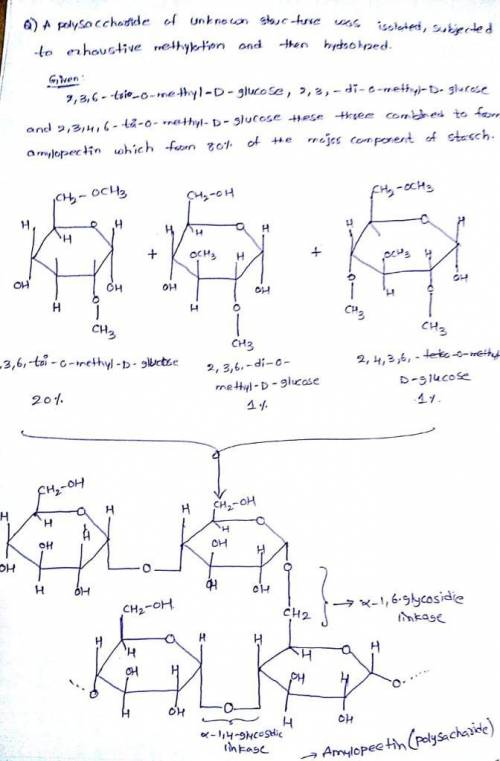 Q) A polysaccharide of unknown structure was isolated, subjected
to exhaustive methylation and then hydrolized.
Given:
2,3,6-trio-o-methyl-D-glucose, 2,3,-di-o-methyl-D-glucose
and 2,3,4,6-t-o-methyl-D-glucose these three combined to form
amylopectin which from 80% of the major component of starch.
CH2-OCH3 CH2-OH CH2-OCH3
H O H H O H O H
H H H
+ OCH3 H + OCH3 H
OH H OH OH OH O H OH
H O H O CH3 O
CH3 CH3 CH3
,3,6,-tri-o-methyl-D-glucose 2,3,6,-di-o-methyl-D-glucose 2,4,3,6,-tetra-o-methyl D-glucose
20% 1% 1%
CH2-OH CH2-OH
H O H H O
H H H
OH H OH H O
OH H OH O H OH OH
CH2 → α-1,6-glycosidic linkage
CH2-OH
H O H H O H
H H
OH H OH H
O H OH O H OH O
α-1,4-glycosidic linkage
→ Amylopectin (polysacharide)